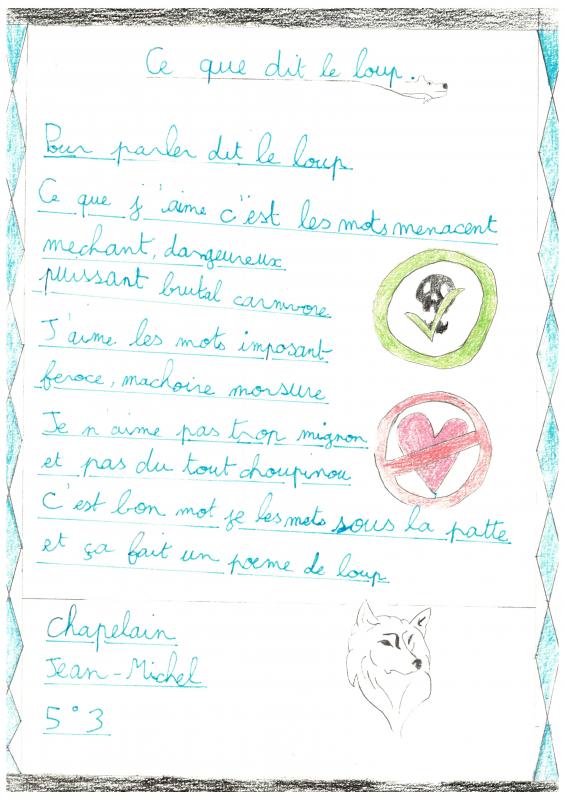 Ce que dit le loup.
Pour parler dit le loup
Ce que j'aime c'est les mots menacent
mechant, dangeureux
puissant brutal carnivore
J'aime les mots imposant
feroce, machoire morsure
Je n'aime pas trop mignon
et pas du tout choupinou
C'est bon mot je les mets sous la patte
et ça fait un poeme de loup
Chapelain
Jean-Michel
5°3